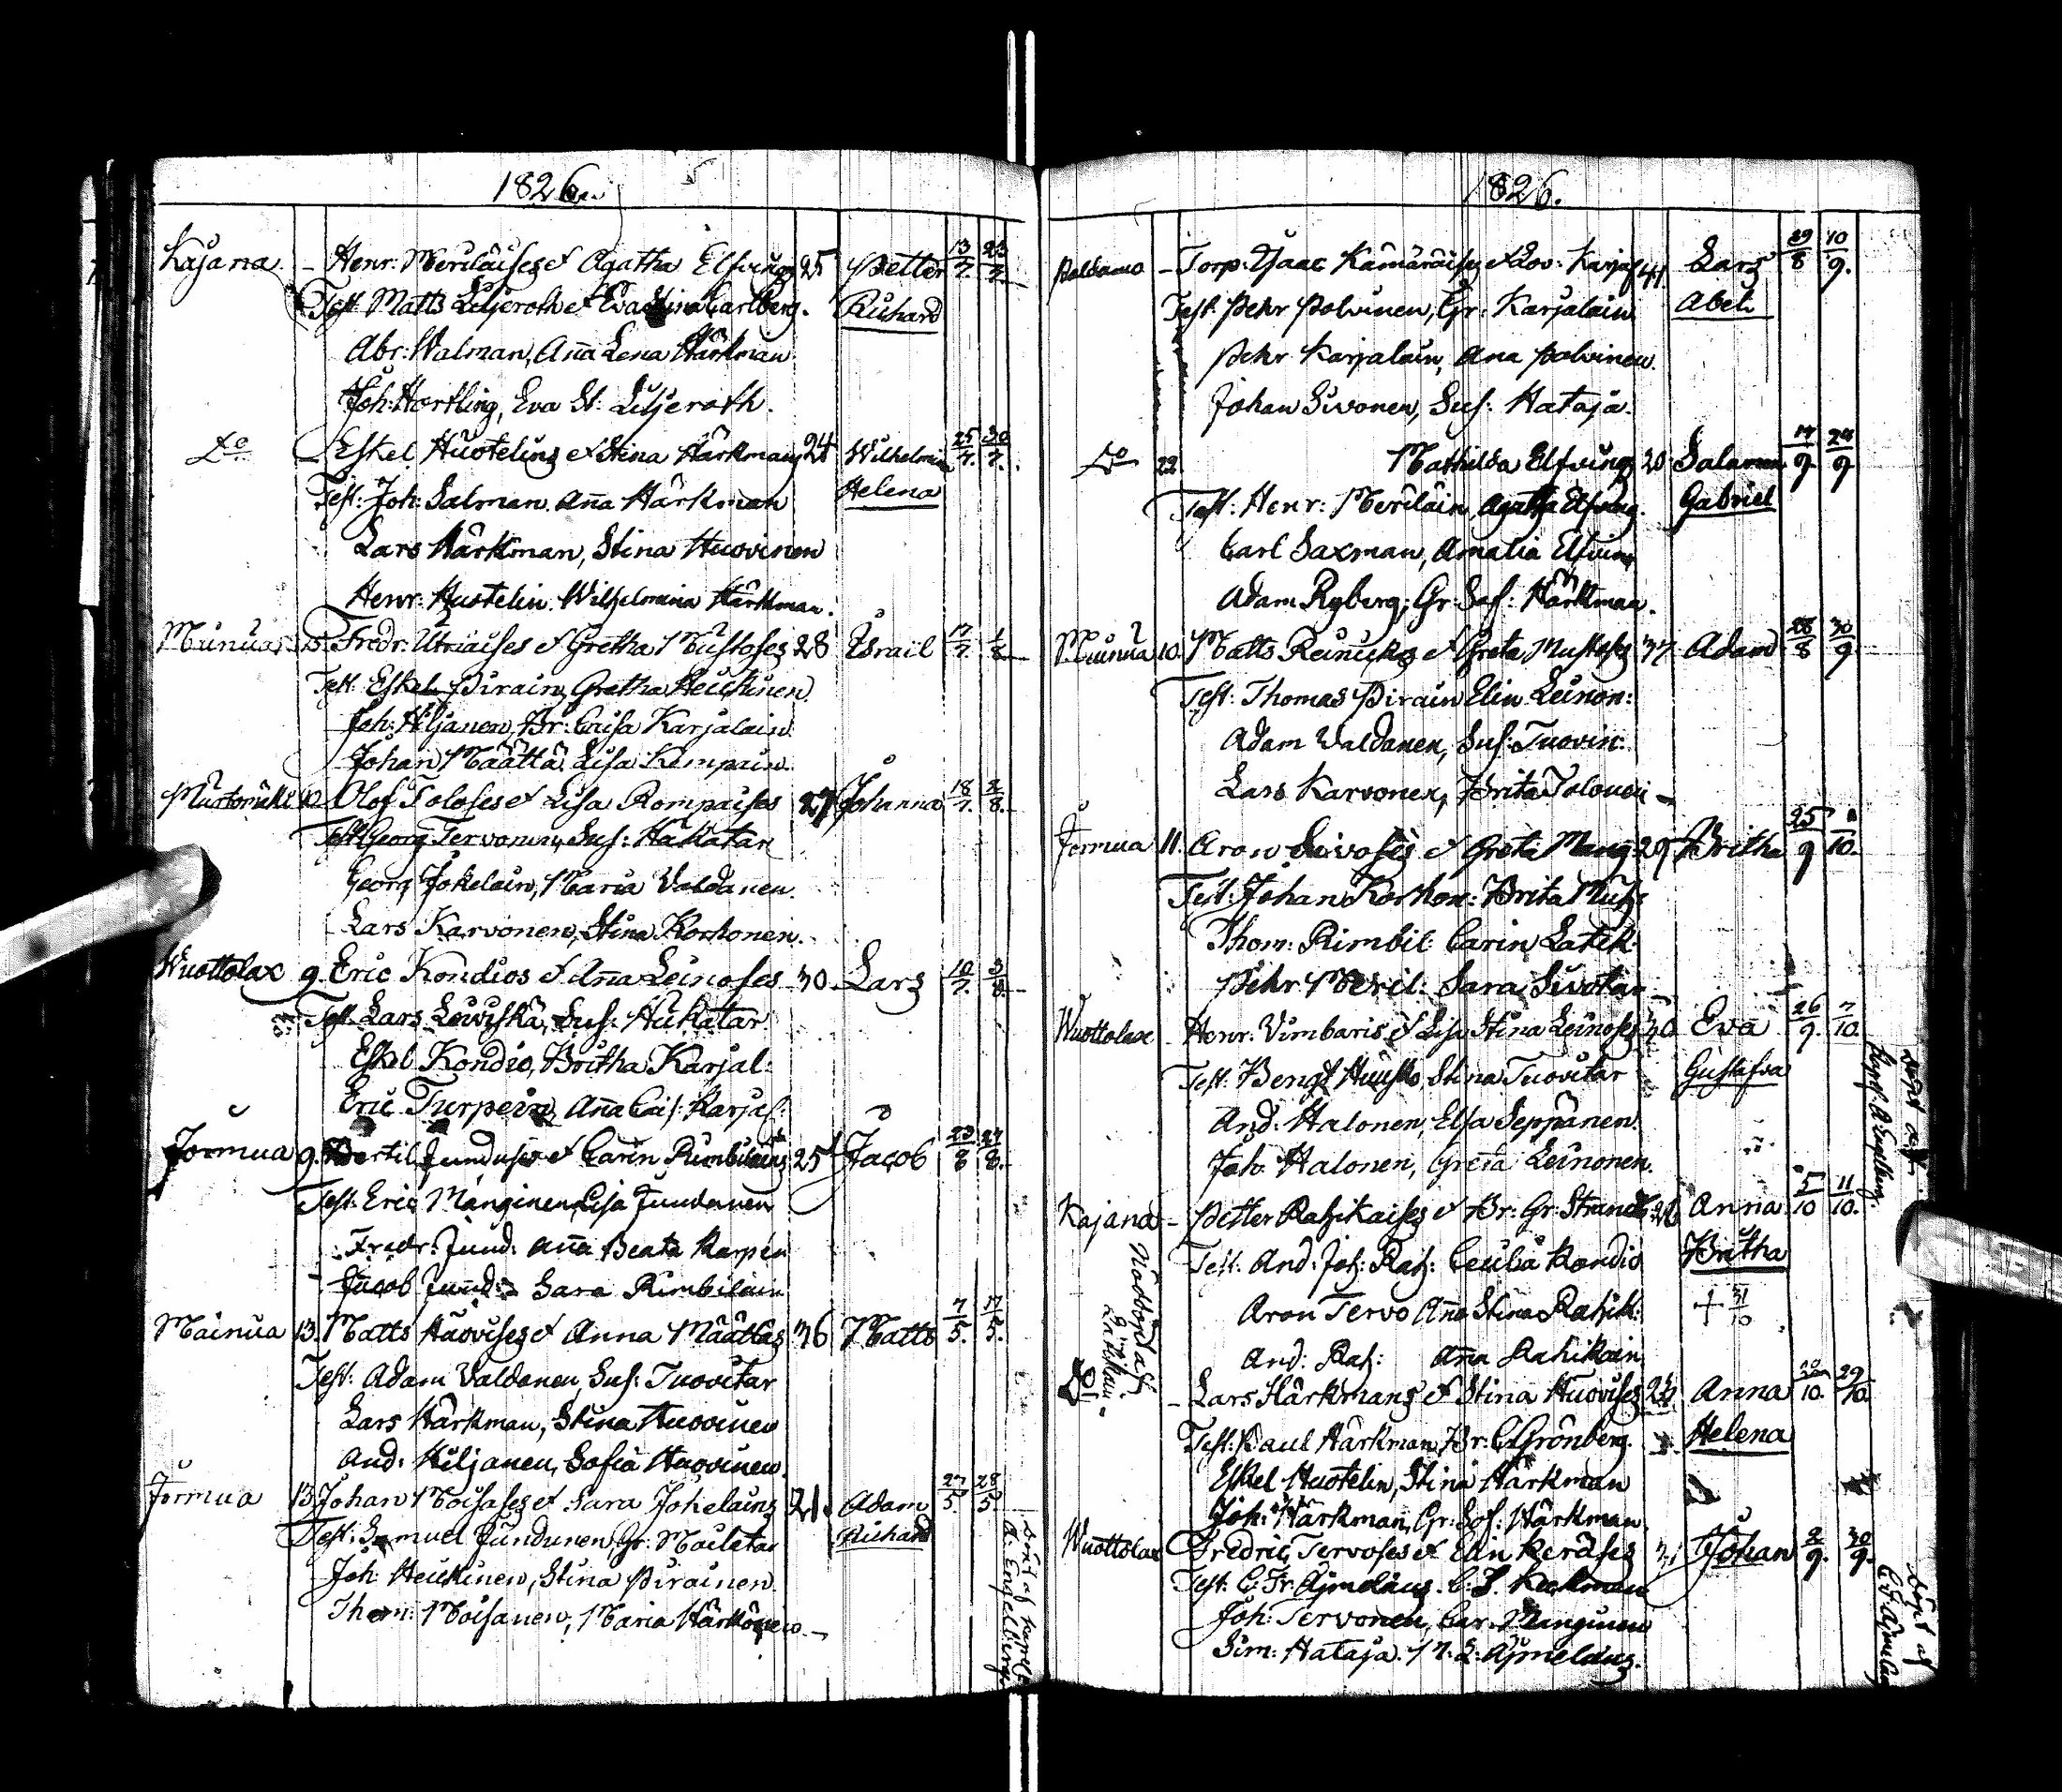 1826.
Kajana. - Henr: Meriläises & Agatha Elfvings 25 Petter 13/7. 23/7.
Test. Matts Liljeroth & Eva Stina Carlberg. Richard
Abr: Walman, Anna Lena Härkman
Joh: Hortling, Eva St: Liljeroth.
Do - Eskel Huotelins & Stina Härkmans 24 Wilhelmina 25/7. 30/7.
Test: Joh: Salman. Anna Härkman Helena
Lars Härkman, Stina Huovinen
Henr: Huotelin Wilhelmina Härkman.
Mainua 5. Fredr: Utriaises & Gretha Mustoses 28 Israil 17/7. 1/8
Test: Eskel Pirain, Gretha Heickinen
Joh: Hiljanen, Br: Caisa Karjalain
Johan Määttä Lisa Kempain.
Murtomäki 12. Olof Toloses & Lisa Rompaises 27 Johanna 18/7. 2/8.
Test Georg Tervonen, Sus: Hakatar
Georg Jokelain, Maria Valdanen.
Lars Karvonen, Stina Korhonen.
Wuottolax 9. Eric Kondios & Anna Leinoses 30 Lars 10/7. 3/8.
Test. Lars Leiviskä, Sus: Hukatar
Eskel Kondio, Britha Karjal:
Eric Turpein, Anna Cais: Karjal:
Jormua 9. Bertil Junduses & Carin Rimbiläins 25 Jacob 23/8 27/8.
Test. Eric Manginen, Lisa Jundanen
Fredr: Jund: Anna Beata Karpin
Jacob Jund: Sara Rimbilain
Mainua 13. Matts Huovises & Anna Määttäs 36 Matts 7/5. 17/5.
Test: Adam Valdanen, Sus: Tuovitar
Lars Härkman, Stina Huovinen
And: Hiljanen, Sofia Huovinen.
Jormua 13. Johan Moisases & Sara Jokelains 21. Adam 27/5. 28/5
Test: Samuel Jundunen, Gr: Mailatar Richard
Joh: Heickinen, Stina Pirainen.
Thom: Moisanen, Maria Härkönen.
A: Engelberg.
1826.
Paldamo - Torp: Isaac Kämäräises & Lov: Karjal 41 Lars 29/8 10/9.
Test. Pehr Polvinen, Gr: Karjalain Abel
Pehr Karjalain, Ana Polvinen.
Johan Sivonen, Sus: Hataja.
Do 22 Mathilda Elfvings 20. Salamon 17/9. 24/9
Test: Henr: Merilain, Agatha Elfving. Gabriel
Carl Saxman, Amalia Elfving
Adam Ryberg, Gr: Sof: Härkman.
Mainua 10. Matts Reinickas & Greta Mustoses 37 Adam 28/8 30/9
Test: Thomas Pirain Elin Leinon:
Adam Valdanen, Sus: Tuovin:
Lars Karvonen, Brita Tolonen
Jormua 11. Aron Sivoses & Greta Mang: 29 Britha 25/9 /10.
Test: Johan Korhon: Brita Must:
Thom: Rimbil: Carin Latik:
Pehr Meril: Sara Sivotar
Wuottolax - Henr: Vimbaris & Lisa Stina Leinoses 30 Eva 26/9. 7/10.
Test: Bengt Huusko, Stina Tuovitar Gustafva
And: Halonen, Elsa Seppänen.
Joh: Halonen, Greta Leinonen.
Döpt af
A: Engelberg.
Kajana - Petter Rahikaises & Br: Gr: Strands 26 Anna 5/10 11/10.
Test. And: Joh: Rah: Cecilia Kondio Britha
Aron Tervo Anna Stina Rahik: + 31/10
And: Rah: Anna Rahikain
Nöddöpt af
Do - Lars Härkmans & Stina Huovises 24 Anna 20/10. 29/10.
Test: Paul Härkman, Br: C: Grönberg. Helena
Eskel Huotelin, Stina Härkman
Joh: Härkman, Gr: Sof: Härkman.
Wuottolax Fredric Tervoses & Elin Keräses 31 Johan 2/9. 30/9.
Test. C: Fr: Ajmelaus. C. S. Keckman
Joh: Tervonen, Car: Manginen
Sim: Hataja. M. L: Ajmelaus.
Döpt af
C. F. Ajmelaus